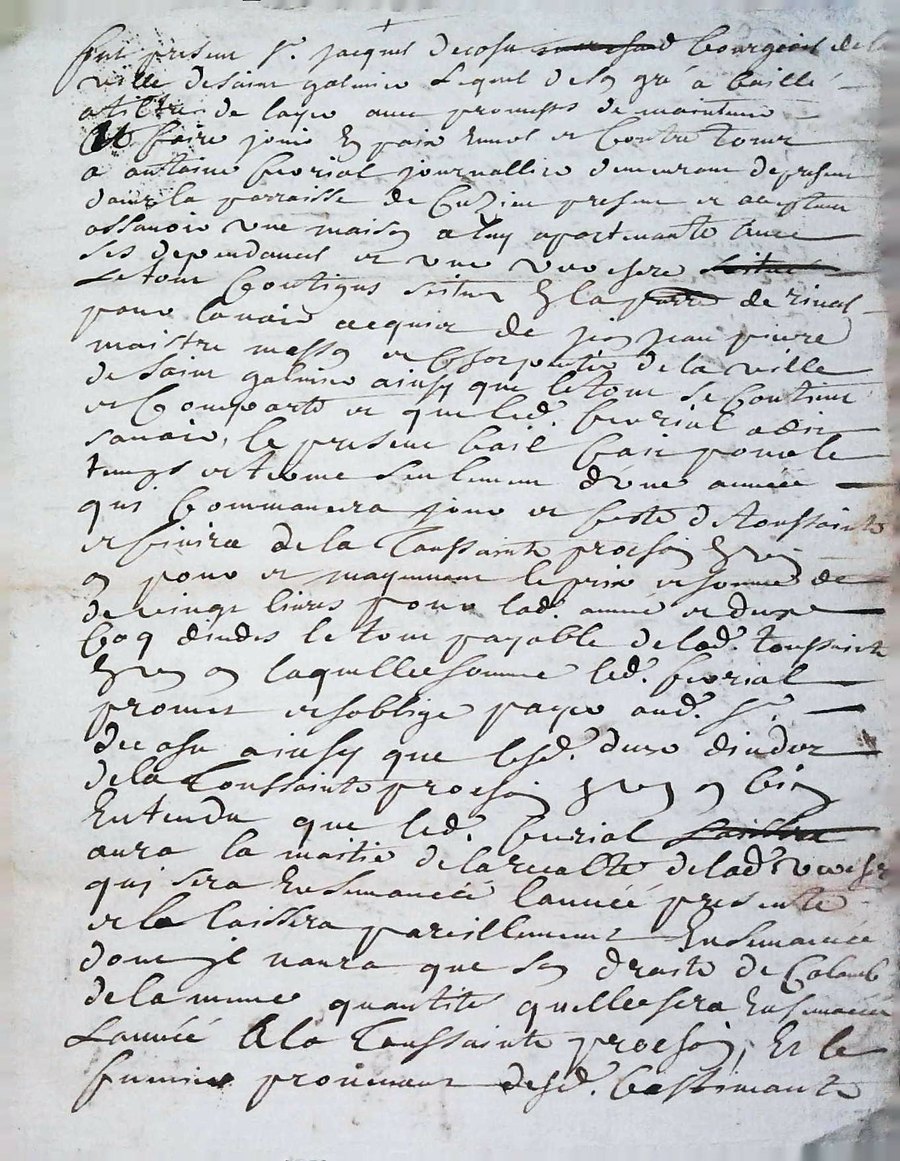 fut present Sr. jacques decosu bourgeois de la
ville de saint galmier lequel de son gré a baillé
a tiltre de avec promesse de maintenir
et faire jouir en paix envers et contre tous
a antoine journallier demeurant de present
dans la parroisse de present et acceptant
assavoir une maison a luy apartenante avec
ses dependances et une
le tout contigus scitué en la de
pour lavoir acquis de jean pierre
maistre masson et de la ville
de saint galmier ainsy que le tout se contient
et comporte et que led. a dit
savoir, le present bail fait pour le
temps et terme seulement d'une année
qui commancera jour et feste de toussainte
et finira de la Toussainte prochain en un
an pour et moyennant le prix et somme de
de vingt livres pour lad. année et deux
coq dindes le tout payable de lad. toussainte
en un an laquelle somme led.
promet et soblige payer aud. Sr.
decosu ainsy que lesd. deux dindes
de la Toussainte prochain en un an bien
entendu que led.
aura la moitié de la recolte de lad.
qui sera ensemancée lannéé presente
et la laissera pareillement ensemancée
dont il naura que son droit de
de la mume quantité quelle sera ensemancée
Lannéé a la Toussainte prochain, Et le
fumier provenant desd. bastimants